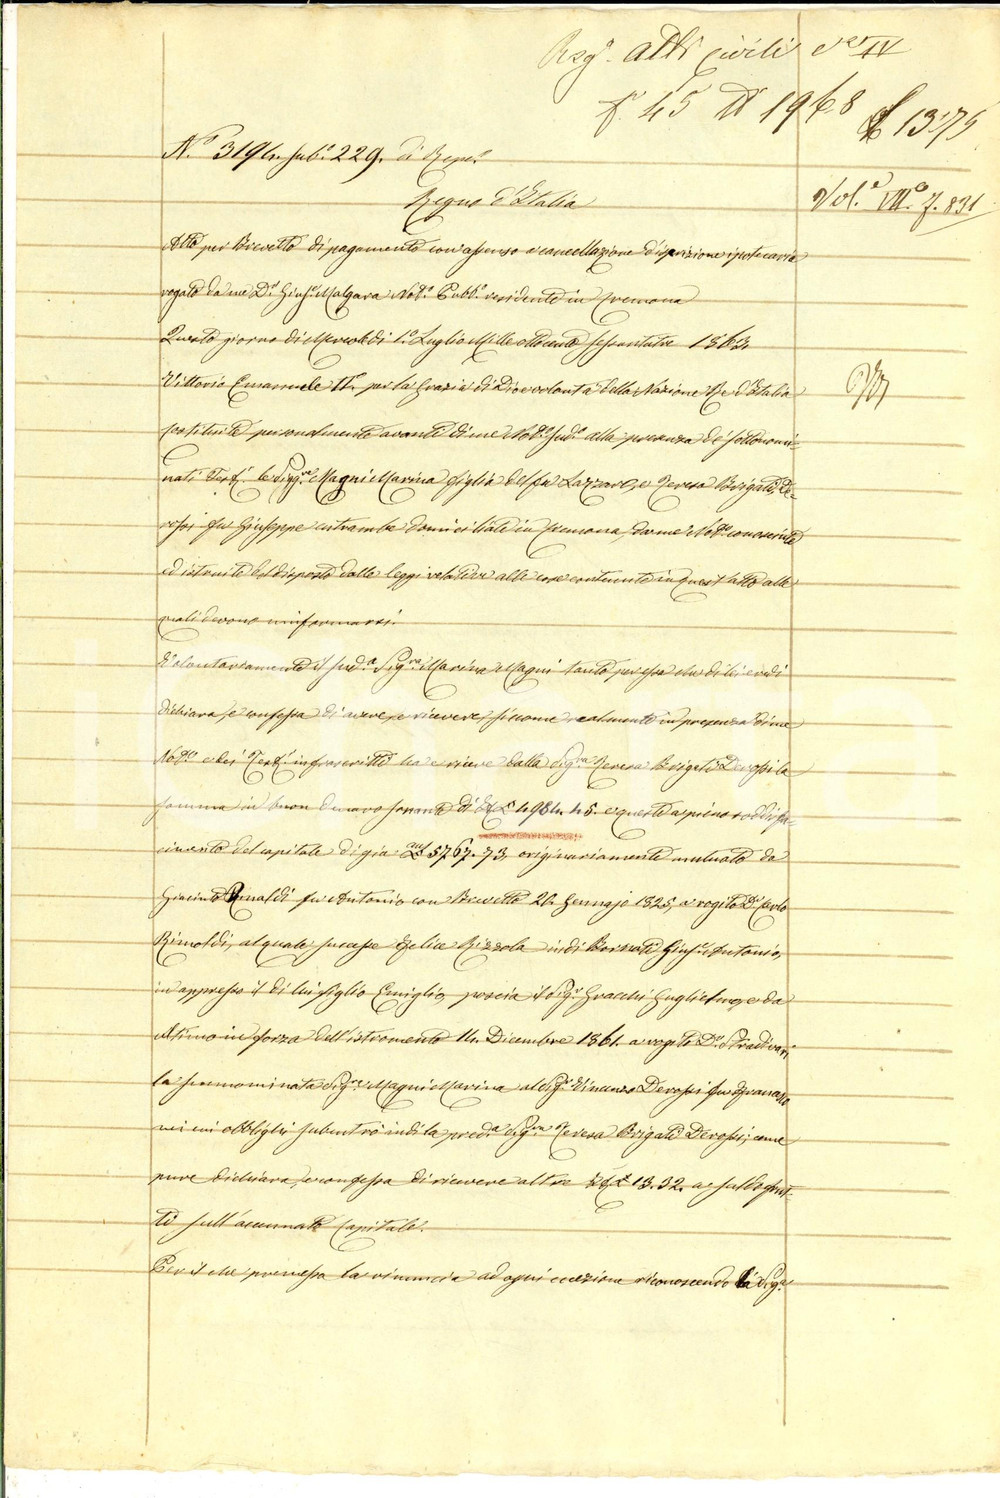 Reg.º Atti Civili
f. 45 N 1968 £ 13,75
Vol.e VIIIº f. 831
N.º 3194. sub.º 229. di Rep.º
Regno d'Italia
Atto per Brevetto di pagamento con assenso a cancellazione d'iscrizione ipotecaria
rogato da me D.r Gius.e Malgara Not.º Pubb.º residente in Cremona
Questo giorno di Mercoledì 1.º Luglio Mille ottocento sessantatre 1863.
Vittorio Emanuele IIº per la Grazia di Dio e volontà della Nazione Re d'Italia
Costituite personalmente avanti di me Not.º sud.º alla presenza de' sottonomi-
nati Test.i le Sigg.re Magni Marina figlia del fu Lazzaro, e Teresa Brigati De-
rossi fu Giuseppe entrambe domiciliate in Cremona, da me Not.º conosciute
ed istruite del disposto dalle leggi relative alle cose contenute in quest'atto alle
quali devono uniformarsi.
Volontariamente il sud.a Sig.ra Marina Magni tanto per essa che di lei eredi
dichiara, e confessa di avere, e ricevere, siccome realmente in presenza di me
Not.º e dei Test.i infrascritti ha e riceve dalla Sig.ra Teresa Brigati Derossi la
somma in buon denaro sonante di £ 4984.45. e questa a pieno soddisfa-
cimento del capitale di già £ 5767.73, originariamente mutuato da
Giacinto Rinaldi fu Antonio con Brevetto 26. Gennajo 1825, a rogito D.r Carlo
Rimoldi, al quale successe Felice Rizzola indi Bornati Gius.e Antonio,
in appresso il di lui figlio Emiglio, poscia il Sig.r Gracchi Guglielmo, e da
ultimo in forza dell'istromento 14. Dicembre 1861. a rogito D.r Stradivari
la prenominata Sig.ra Magni Marina al Sig.r Derossi fu Francesco
nei cui obblighi subentrò indi la pred.a Sig.ra Teresa Brigati Derossi; come
pure dichiara, e confessa di ricevere altre £ 13.32. a saldo frut-
ti sull'accennato Capitale.
Per il che premessa la rinuncia ad ogni eccezione riconoscendo la Sig.a